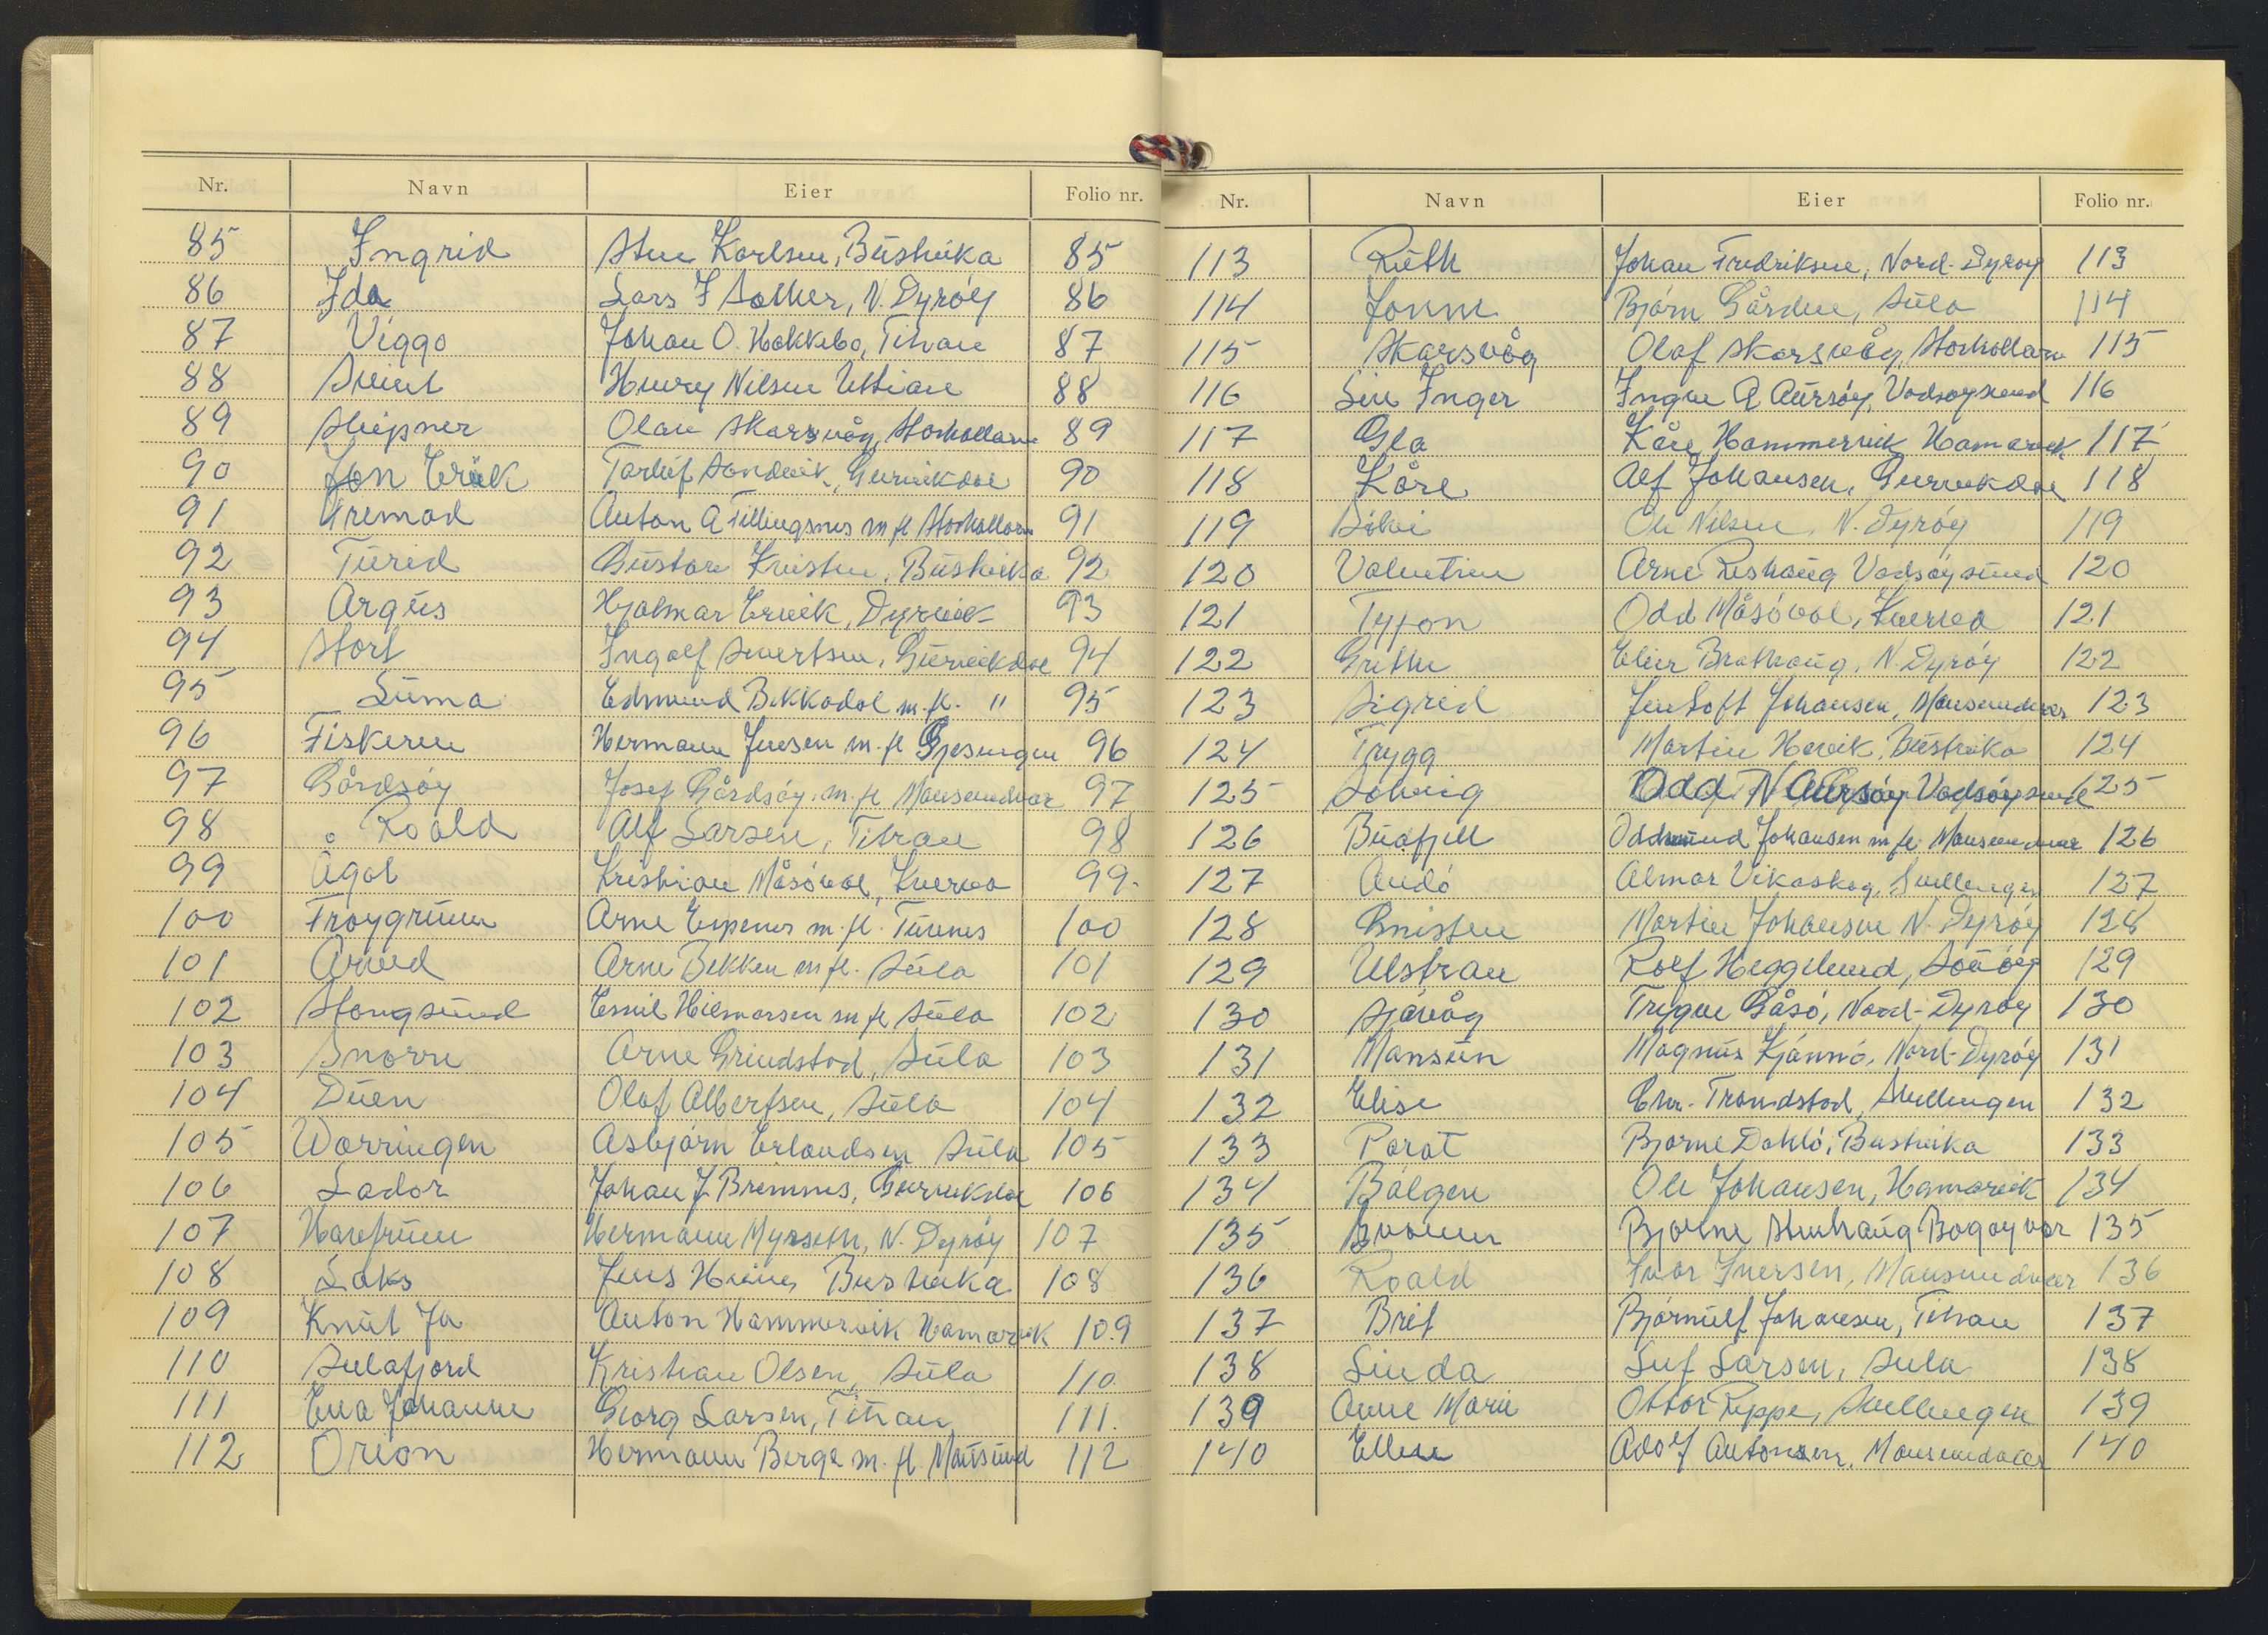 Nr. Navn Eier Folio nr.
85 Ingrid Sten Karlsen, Bustvika 85
86 Ida Lars J Solher, N. Dyrøy 86
87 Viggo Johan O. Hakkebo, Titran 87
88 Svint Henry Nilsen Uttian 88
89 Sleipner Olav Skarsvåg, Storhallarn 89
90 Jon Erik Torleif Sandvik, Gurvikdal 90
91 Framad Anton A Fillingsnes m fl Storhallarn 91
92 Turid Gustav Kristen, Bustvika 92
93 Argus Hjalmar Ervik, Dyrvik 93
94 Stort Ingolf Sivertsen, Gurvikdal 94
95 Luma Edmund Bekkadal m. fl. " 95
96 Fiskeren Hermann Jensen m. fl Gjesingen 96
97 Gårdsøy Josef Gårdsøy m. fl Mausundvær 97
98 Roald Alf Larsen, Titran 98
99 Ågot Kristian Måsøval, Kverva 99.
100 Frøygrunn Arne Espnes m. fl. Tuvnes 100
101 Arvid Arne Bekken m fl. Sula 101
102 Stangsund Emil Hilmarsen m fl Sula 102
103 Snorre Arne Grindstad, Sula 103
104 Duen Olaf Albertsen, Sula 104
105 Worringen Asbjørn Erlandsen Sula 105
106 Lador Johan J Bremnes, Gurvikdal 106
107 Havbruen Hermann Myrseth, N. Dyrøy 107
108 Laks Jens Heines Bustvika 108
109 Knut Jo Anton Hammervik Hamarvik 109
110 Sulafjord Kristian Olsen, Sula 110
111 Eva Johanne Georg Larsen, Titran 111.
112 Orion Hermann Berge m. fl. Mausund 112
Nr. Navn Eier Folio nr.
113 Ruth Johan Fredriksen, Nord-Dyrøy 113
114 Jonni Bjørn Gården, Sula 114
115 Skarsvåg Olaf Skarsvåg, Storhallarn 115
116 Siv Inger Ingvar A Aursøy, Vadsøysund 116
117 Gla Kåre Hammervik Hamarvik 117
118 Kåre Alf Johansen, Gurvikdal 118
119 Silvi Ole Nilsen N. Dyrøy 119
120 Valentine Arne Reshaug Vadsøysund 120
121 Tyfon Odd Måsøval, Kverva 121
122 Grethe Elier Brathaug, N. Dyrøy 122
123 Sigrid Jentoft Johansen, Mausundvær 123
124 Trygg Martin Hervik, Bustvika 124
125 Solveig Odd N Aursøy Vadsøysund 125
126 Buafjell Oddmund Johansen m fl. Mausundvær 126
127 Audø Almar Vikaskag, Svellingen 127
128 Gnisten Martin Johansen N. Dyrøy 128
129 Ulstrau Rolf Heggelund, Sauøy 129
130 Sjøvåg Trygve Gåsø, Nord-Dyrøy 130
131 Mansun Magnus Kjønnø, Nord-Dyrøy 131
132 Elise Chr. Trondstad, Svellingen 132
133 Parat Bjarne Dahlø, Bustvika 133
134 Bølgen Ole Johansen, Hamarvik 134
135 Svanen Bjarne Stenhaug Bogøyvær 135
136 Roald Ivar Iversen, Mausundvær 136
137 Brit Bjørnulf Johansen, Titran 137
138 Linda Leif Larsen, Sula 138
139 Anne Marie Ottar Reppe, Svellingen 139
140 Ellen Adolf Antonsen, Mausundvær 140